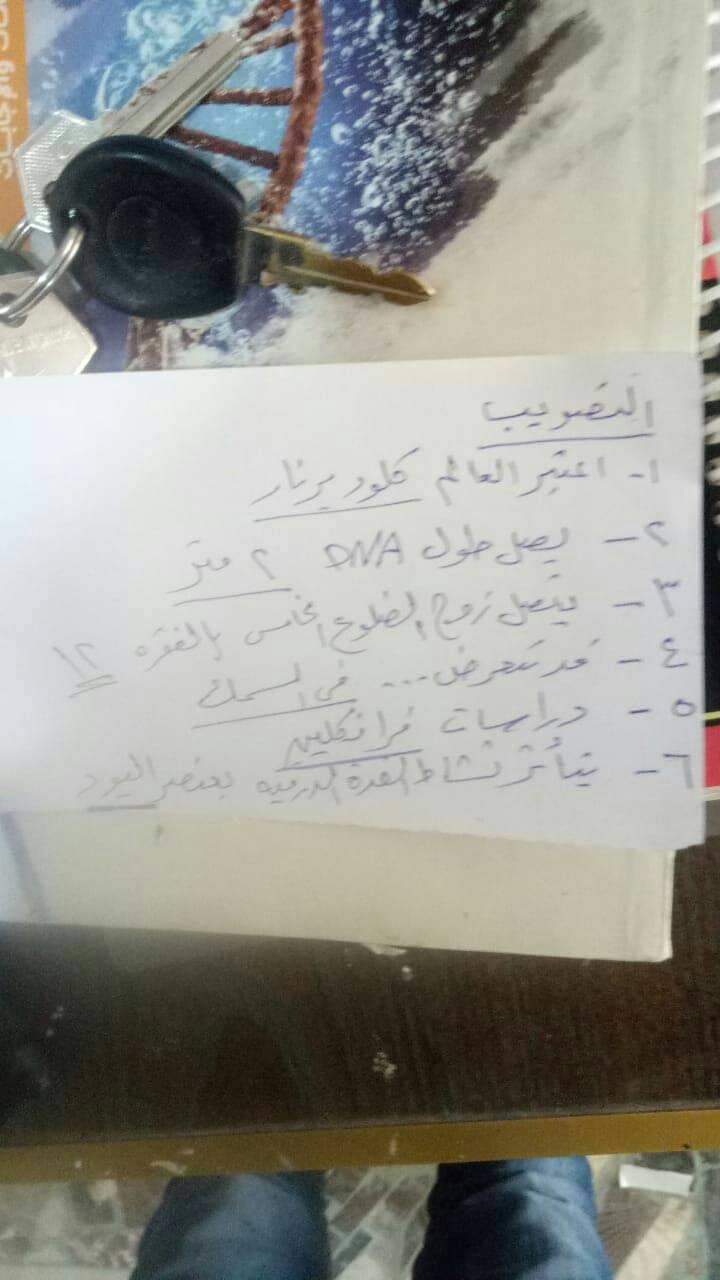 التصويب
١- اعتبر العالم كلود برنار
٢- يصل طول DNA ٢ متر
٣- يتصل زوج الضلوع الخامس بالفقره ١٢
٤- قد تتعرض ... في السمك
٥- دراسات فرانكلين
٦- يتأثر نشاط الغدة الدرقيه بعنصر اليود